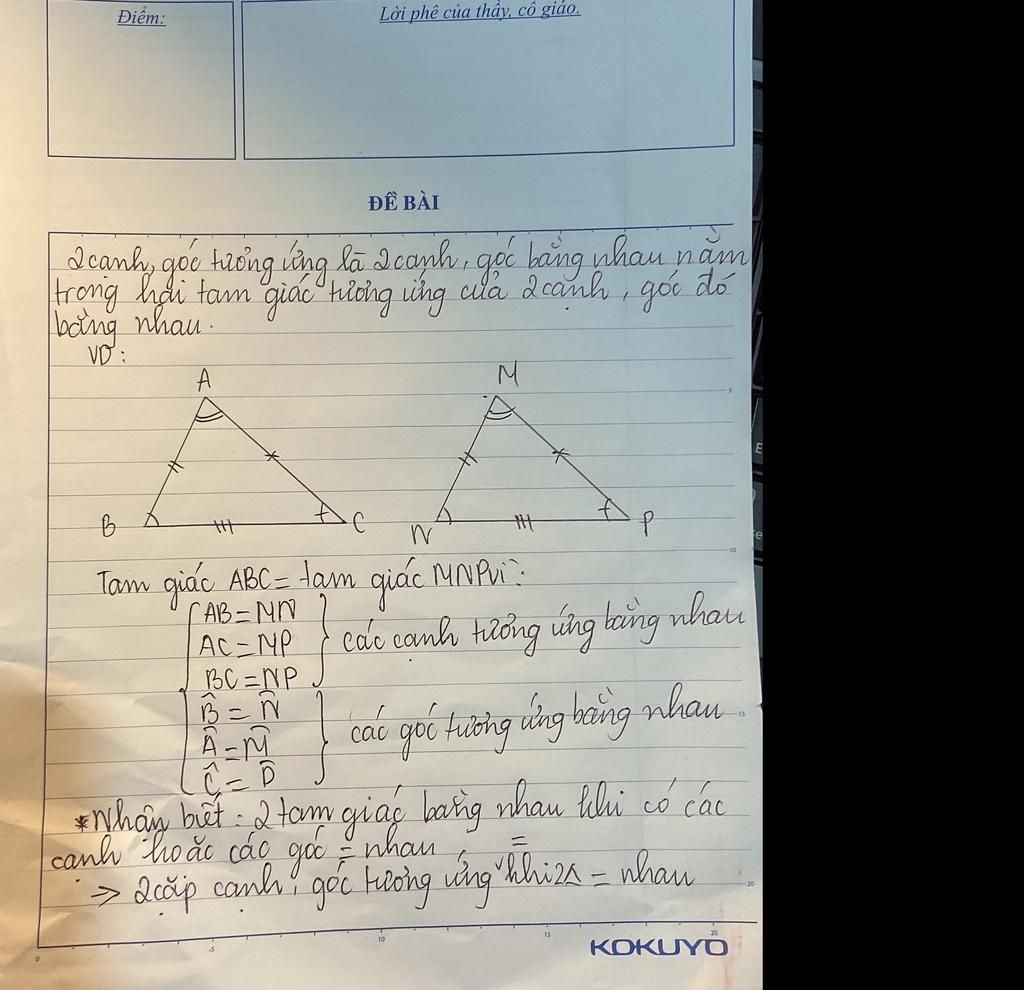 Điểm:
Lời phê của thầy, cô giáo.
ĐỀ BÀI
2 cạnh, góc tương ứng là 2 cạnh, góc bằng nhau nằm
trong hai tam giác tương ứng của 2 cạnh, góc đó
bằng nhau.
VD:
A
M
B
C
N
P
Tam giác ABC = tam giác MNP vì:
AB = MN
AC = MP
các cạnh tương ứng bằng nhau
BC = NP
B̂ = N̂
các góc tương ứng bằng nhau
Â = M̂
Ĉ = P̂
*Nhận biết: 2 tam giác bằng nhau khi có các
cạnh hoặc các góc = nhau
=
=> 2 cặp cạnh, góc tương ứng khi 2Δ = nhau
5
10
15
20
0
5
10
15
20
KOKUYO
E